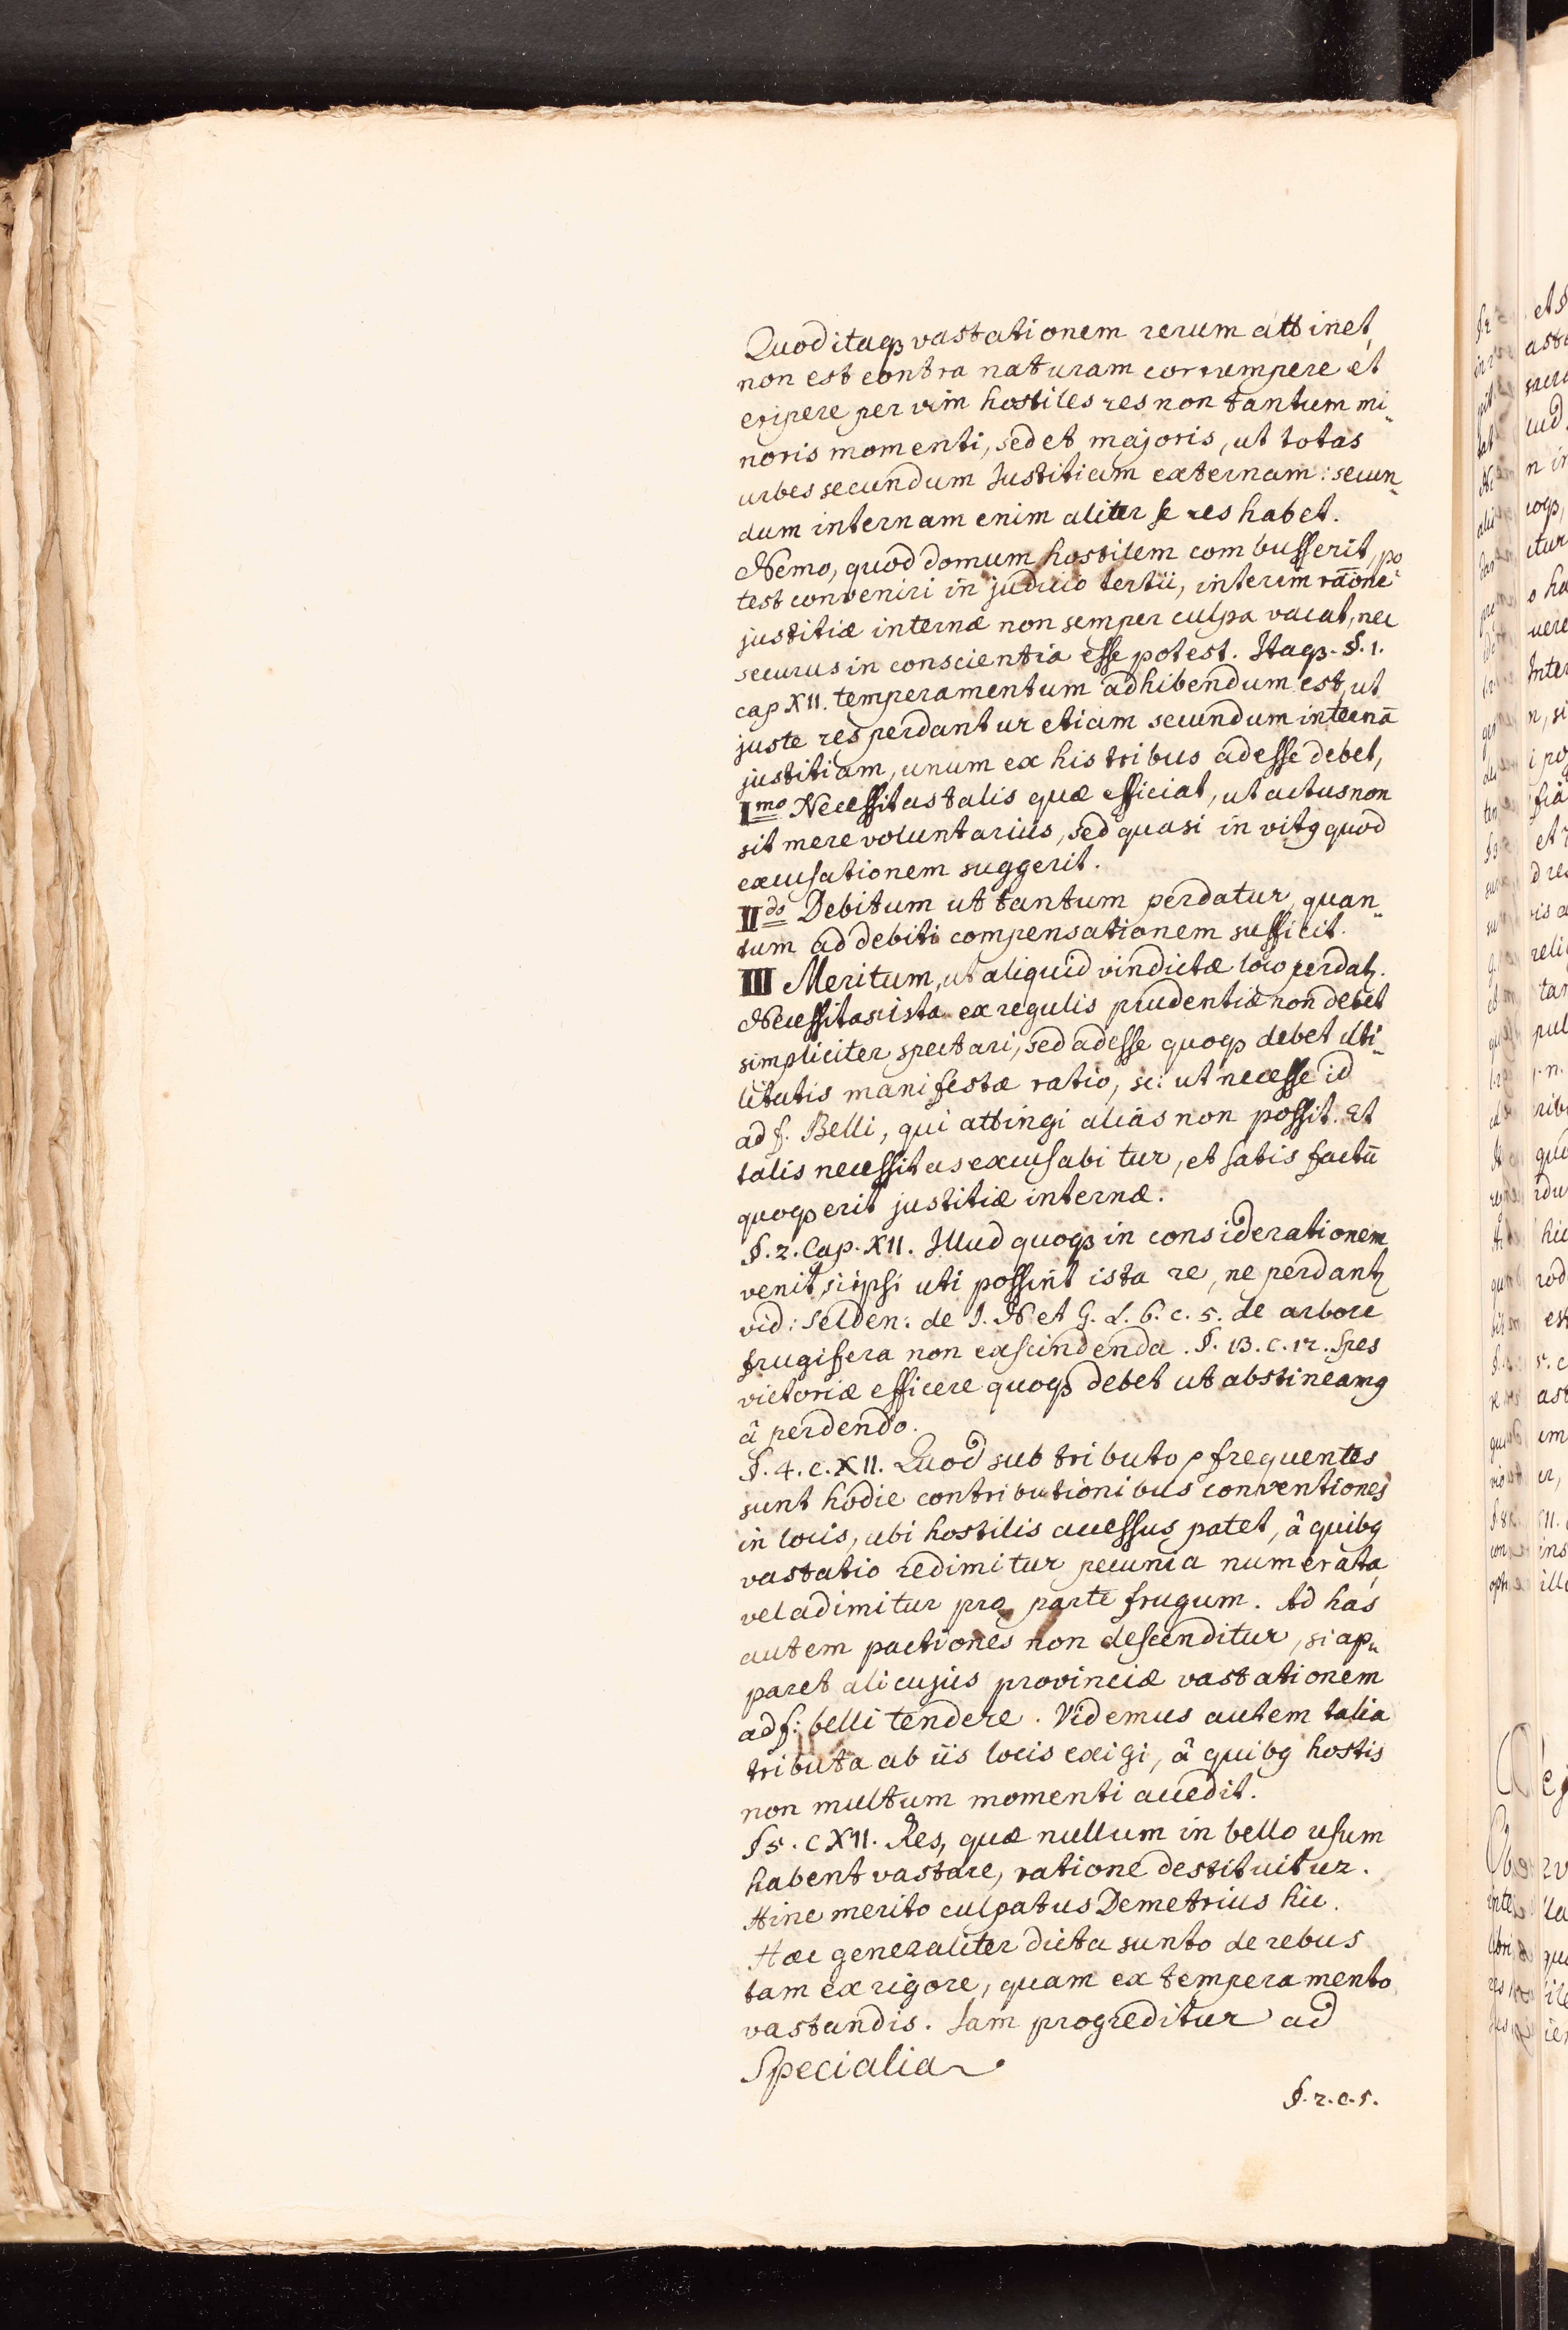 Quod itaqꝫ vastationem rerum attinet,
non est contra naturam corrumpere et
eripere per vim hostiles res non tantum mi„
noris momenti, sed et majoris, ut totas
urbes secundum Justitiam externam: secun„
dum internam enim aliter se res habet.
Nemo, quod domum hostilem combusserit, po„
test conveniri in judicio tertii, interim rãone
justitiæ internæ non semper culpa vacat, nec
securus in conscientia esse potest. Itaqꝫ. §. 1.
cap XII. temperamentum adhibendum est, ut
juste res perdantur etiam secundum internã
justitiam, unum ex his tribus adesse debet,
I.mo Necessitas talis quæ efficiat, ut actus non
sit mere voluntarius, sed quasi invitꝯ quod
excusationem suggerit.
II.do Debitum ut tantum perdatur, quan„
tum ad debiti compensationem sufficit.
III Meritum, ut aliquid vindictæ loco perdatꝫ.
Necessitas ista ex regulis prudentiæ non debet
simpliciter spectari, sed adesse quoqꝫ debet uti„
litatis manifestæ ratio, sc: ut necesse id
ad f. Belli, qui attingi alias non possit. Et
talis necessitas excusabitur, et satis factũ
quoqꝫ erit justitiæ internæ.
§. 2. Cap. XII. Illud quoqꝫ in considerationem
venit, si ipsi uti possint ista re, ne perdantꝫ
vid: Selden: de J. N et G. L. 6. c. 5. de arbore
frugifera non exscindenda. §. 13. c. 12. Spes
victoriæ efficere quoqꝫ debet ut abstineamꝯ
â perdendo.
§. 4. c. XII. Quod sub tributo ꝑ frequentes
sunt hodie contributionibus conventiones
in locis, ubi hostilis accessus patet, â quibꝯ
vastatio redimitur pecunia numerata,
vel adimitur pro parte frugum. Ad has
autem pactiones non descenditur, si ap„
paret alicujus provinciæ vastationem
ad f: belli tendere. Videmus autem talia
tributa ab iis locis exigi, â quibꝯ hostis
non multum momenti accedit.
§ 5. c XII. Res, quæ nullum in bello usum
habent vastare, ratione destituitur.
Hinc merito culpatus Demetrius hic.
Hæc generaliter dicta sunto de rebus
tam ex rigore, quam ex temperamento
vastandis. Jam progreditur ad
Specialia
§. 2. c. 5.